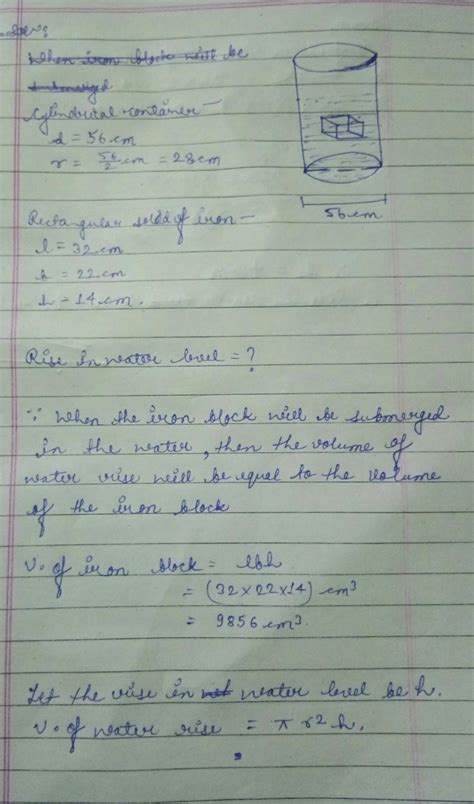 Sol^n:
When iron block will be
submerged
Cylindrical container -
d = 56 cm
r = 56/2 cm = 28 cm
56 cm
Rectangular solid of iron -
l = 32 cm
b = 22 cm
h = 14 cm.
Rise in water level = ?
∵ When the iron block will be submerged
in the water, then the volume of
water rise will be equal to the volume
of the iron block
V. of iron block = lbh
= (32 × 22 × 14) cm³
= 9856 cm³.
Let the rise in water level be h.
V. of water rise = π r² h.